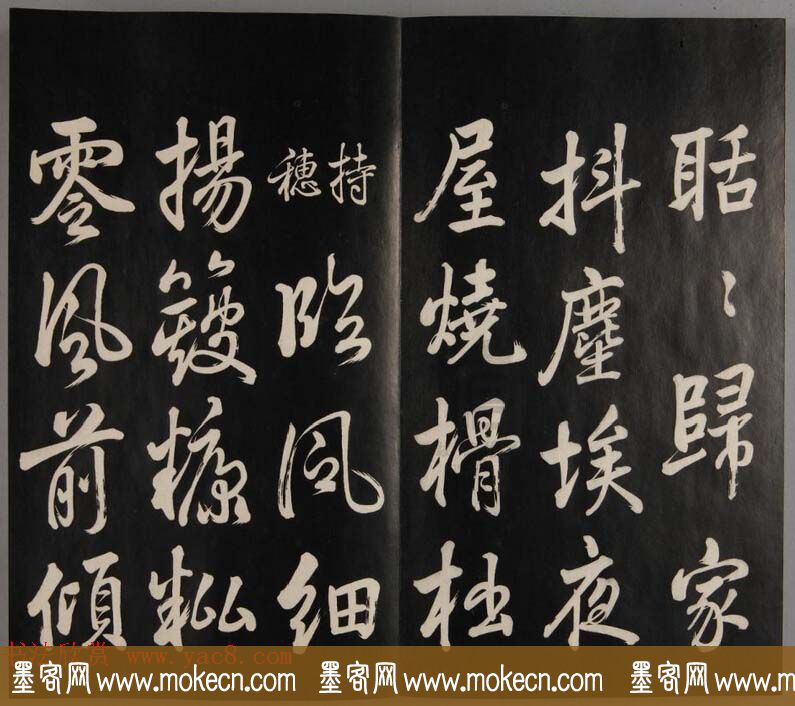 聒〻歸家
抖塵埃夜
屋燒榾柮
持穗
臨風細
揚簸糠粃
零風前傾
书法欣赏 www.yac8.com
墨客网 www.mokecn.com 墨客网 www.mokecn.com 墨客网 www.mokecn.com